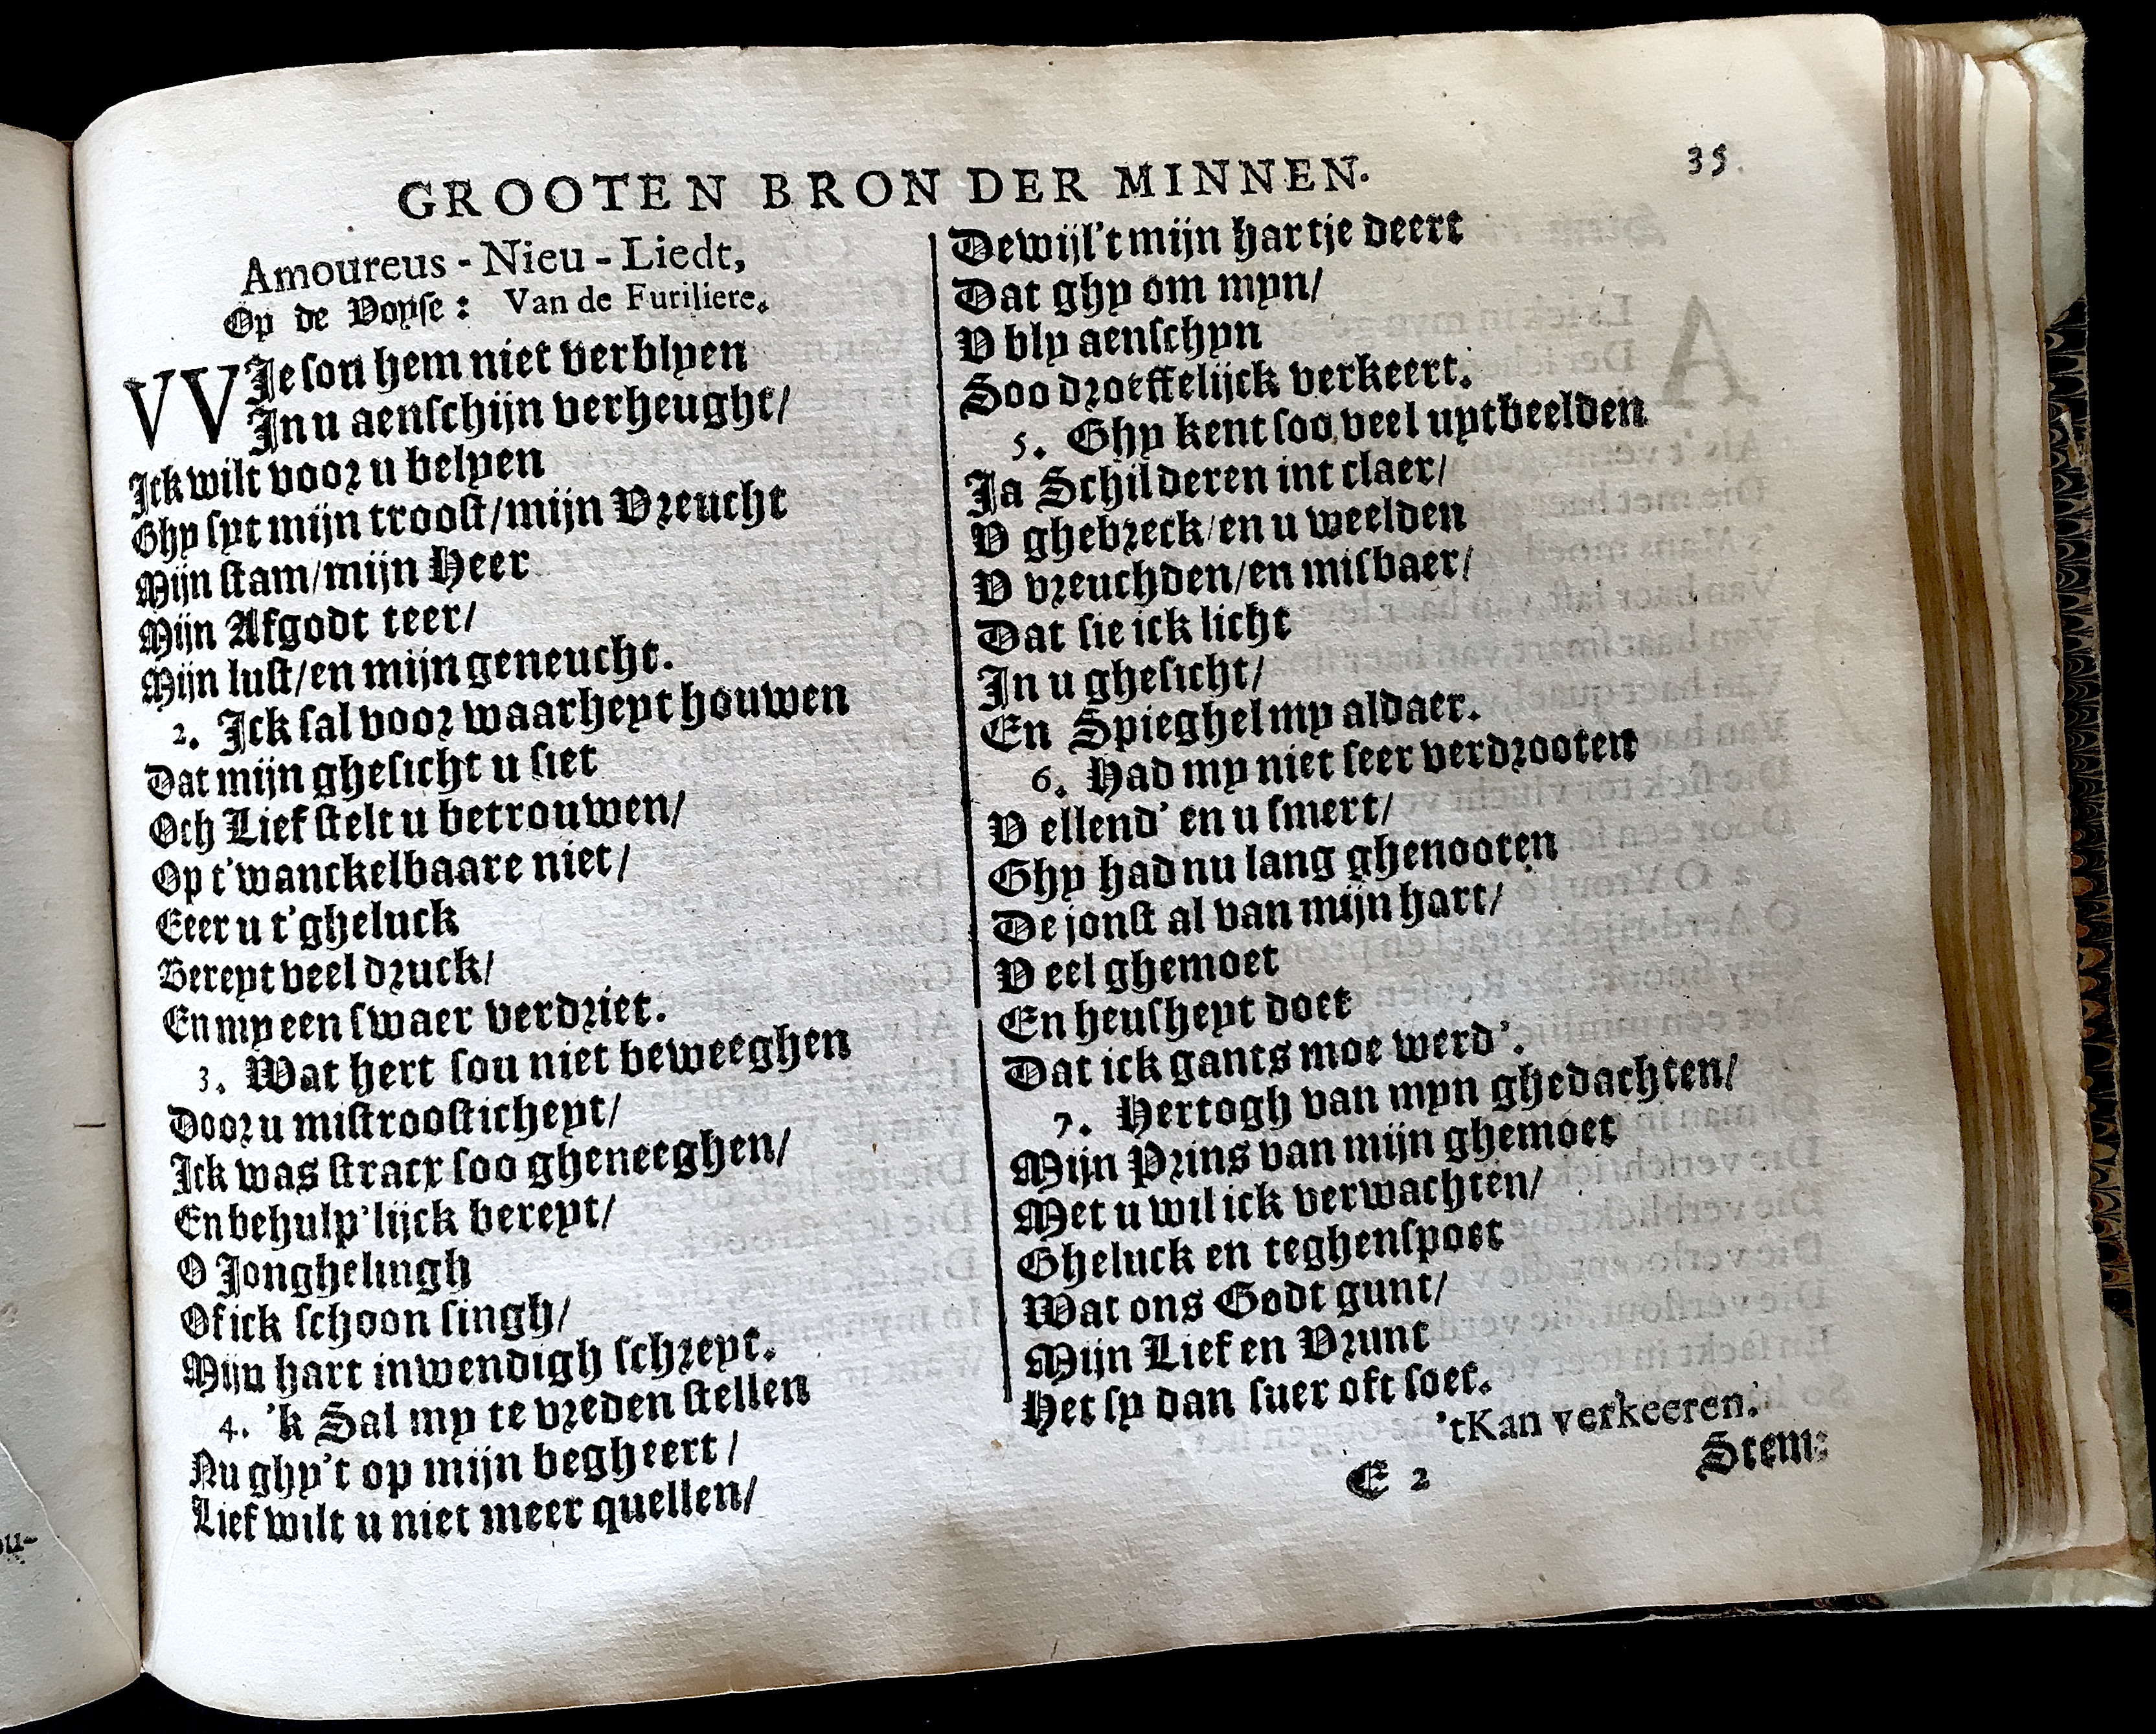 GROOTEN BRON DER MINNEN.
35.
Amoureus-Nieu-Liedt,
Op de Voyse: Van de Futiliere.
VVJe sou hem niet verblyen
In u aenschijn verheught/
Ick wilt voor u belyen
Ghy syt mijn troost/mijn Vreucht
Mijn stam/mijn Heer
Mijn Afgodt teer/
Mijn lust/en mijn geneucht.
2. Ick sal voor waarheyt houwen
Dat mijn ghesicht u siet
Och Lief stelt u betrouwen/
Op t'wanckelbaare niet/
Eeer u t'gheluck
Bereyt veel druck/
En my een swaer verdriet.
3. Wat hert sou niet beweeghen
Door u mistroosticheyt/
Ick was stracx soo gheneeghen/
En behulp'lijck bereyt/
O Jonghelingh
Of ick schoon singh/
Mijn hart inwendigh schreyt.
4. 'k Sal my te vreden stellen
Nu ghy't op mijn begheert/
Lief wilt u niet meer quellen/
Dewijl't mijn hartje deert
Dat ghy om myn/
V bly aenschyn
Soo droeffelijck verkeert.
5. Ghy kent soo veel uytbeelden
Ja Schilderen int claer/
V ghebreck/en u weelden
V vreuchden/en misbaer/
Dat sie ick licht
In u ghesicht/
En Spieghel my aldaer.
6. Had my niet seer verdrooten
V ellend' en u smert/
Ghy had nu lang ghenooten
De jonst al van mijn hart/
V eel ghemoet
En heusheyt doet
Dat ick gants moe werd'.
7. Hertogh van myn ghedachten/
Mijn Prins van mijn ghemoet
Met u wil ick verwachten/
Gheluck en teghenspoet
Wat ons Godt gunt/
Mijn Lief en Vrunt
Het sy dan suer oft soet.
'tKan verkeeren.
E 2
Stem: